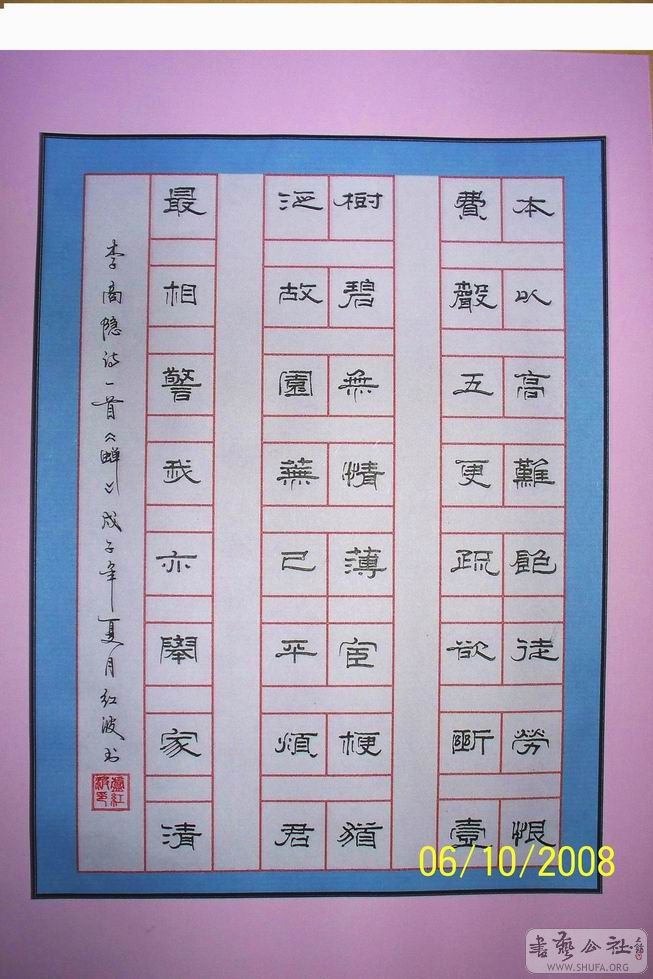 本以高難飽徒勞恨
費聲五更疏欲斷壹
樹碧無情薄宦梗猶
泛故園蕪已平煩君
最相警我亦舉家清
李商隐诗一首《蝉》戊子年夏月红波书
06/10/2008
書藝公社
WWW.SHUFA.ORG